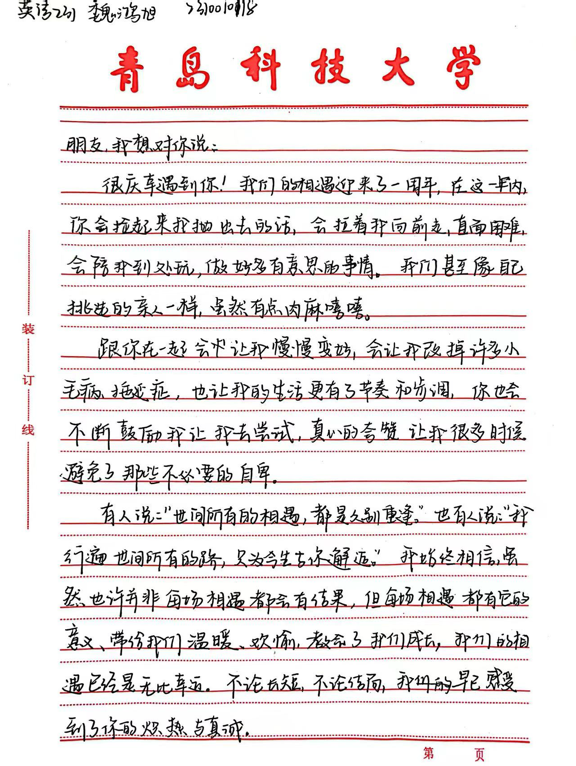 英语231 魏鸿旭 2310010118
青岛科技大学
朋友,我想对你说:
很庆幸遇到你!我们的相遇迎来了一周年,在这一年内,
你会捡起来我抛出去的话,会拉着我向前走,直面困难,
会陪我到处玩,做好多有意思的事情。我们甚至像自己
挑选的亲人一样,虽然有点肉麻嘻嘻。
跟你在一起会让我慢慢变好,会让我改掉许多小
毛病、拖延症,也让我的生活更有了节奏和步调,你也会
不断鼓励我让我去尝试,真心的夸赞让我很多时候
避免了那些不必要的自卑。
有人说:“世间所有的相遇,都是久别重逢。”也有人说:“我
行遍世间所有的路,只为今生与你邂逅。”我始终相信,虽
然也许并非每场相遇都会有结果,但每场相遇都有它的
意义、带给我们温暖、欢愉,教会了我们成长,我们的相
遇已经是无比幸运。不论长短,不论结局,我们的早已感受
到了你的炽热与真诚。
装
订
线
第 页